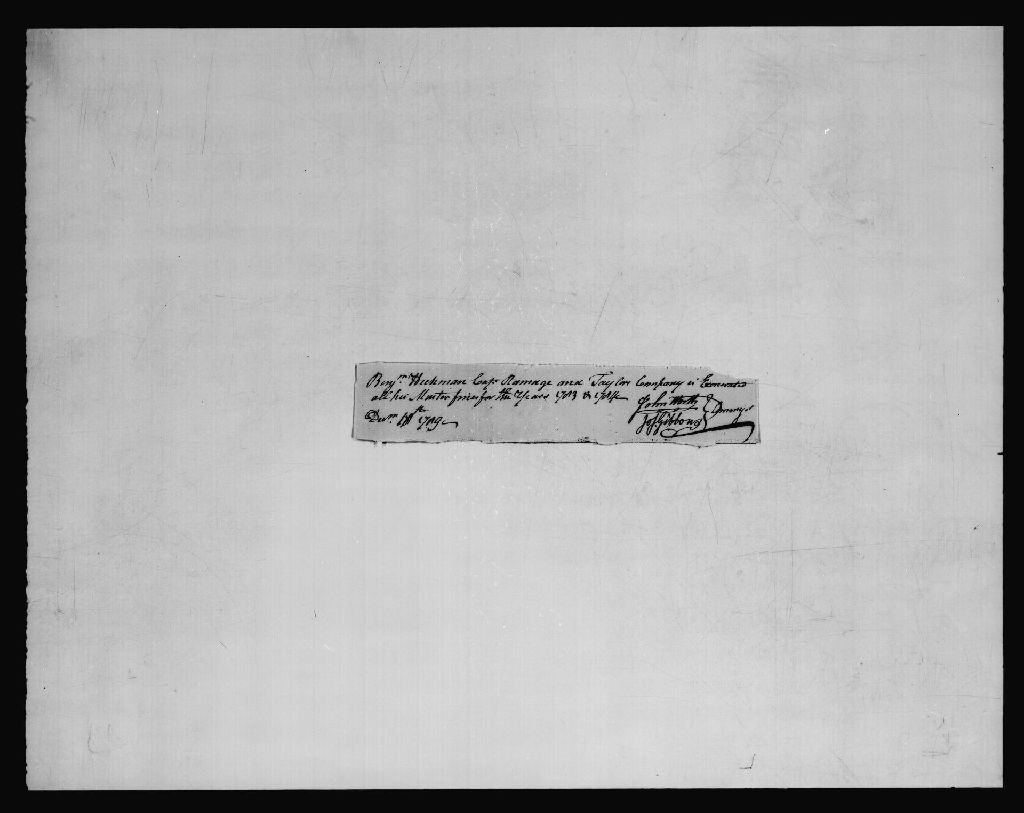 Benjn. Hickman Capt. Ramage and Taylors Company is Exonerated
all his Muster fines for the Years 1783 & 1784
Decm. 11th 1789
John
Jos. Gibbons